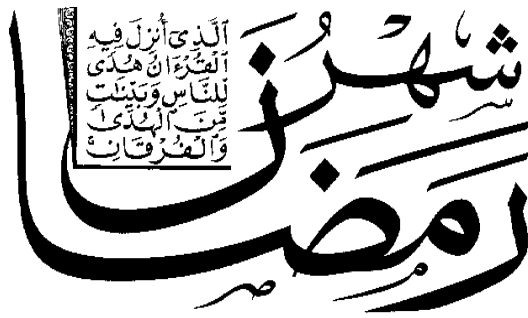 شهر
رمضان
الَّذِىٓ أُنزِلَ فِيهِ
ٱلْقُرْءَانُ هُدًى
لِّلنَّاسِ وَبَيِّنَٰتٍ
مِّنَ ٱلْهُدَىٰ
وَٱلْفُرْقَانِ